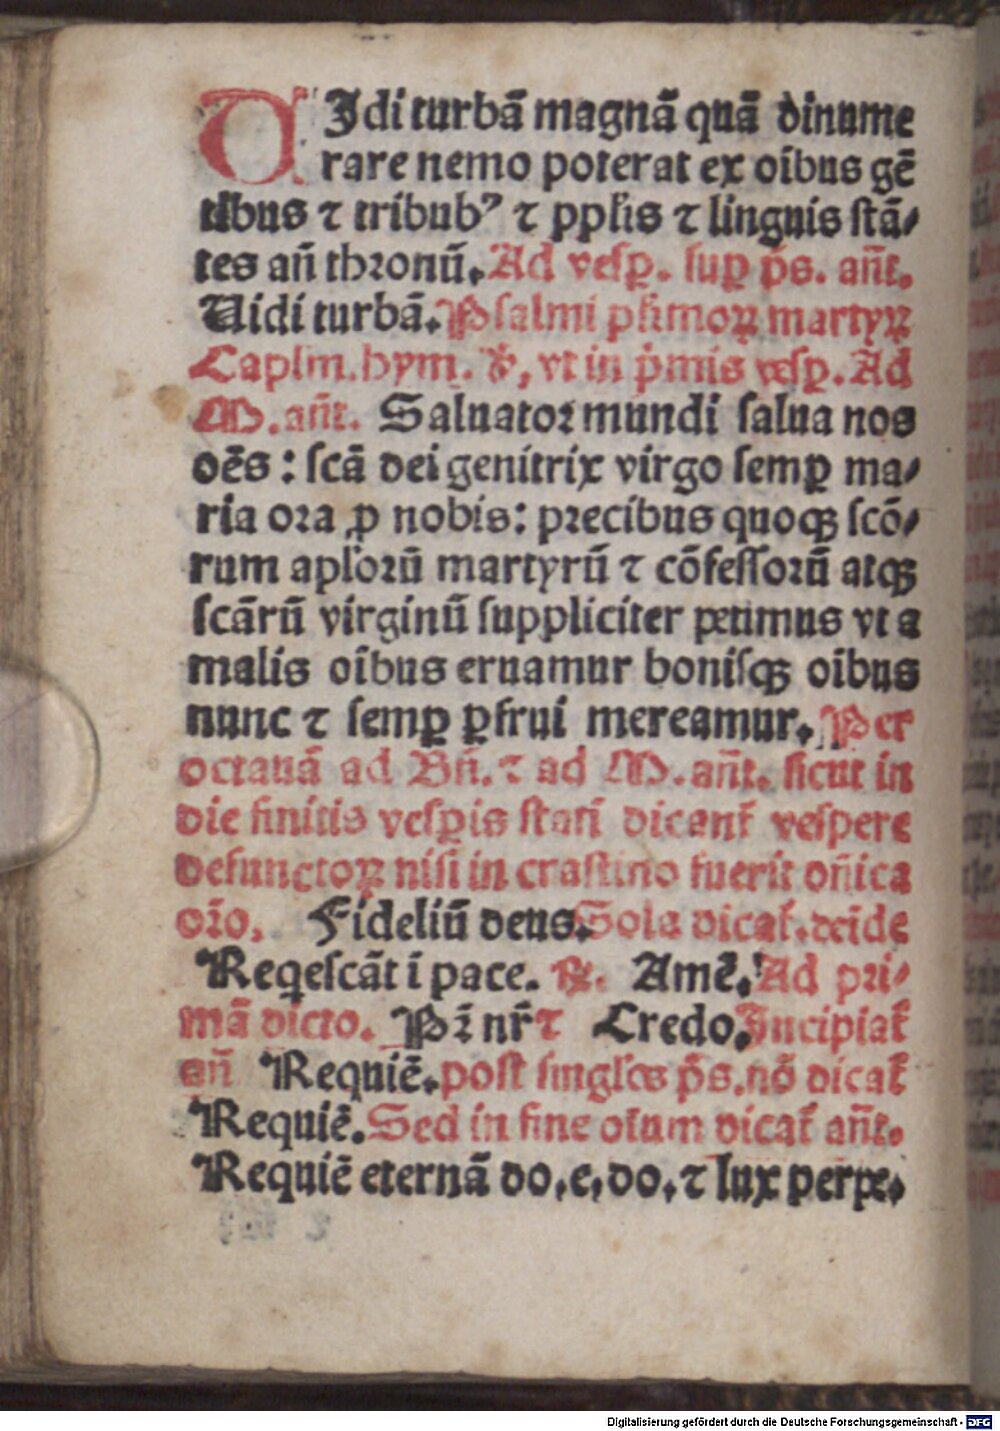 VIdi turbā magnā quā dinume
rare nemo poterat ex oībus gē
tibus ⁊ tribubꝰ ⁊ pplīs ⁊ linguis stā⸗
tes añ thronū. Ad vesꝑ. suꝑ p̄s. añt.
Uidi turbā. Psalmi pl̄imoꝝ martyꝝ
Caplm. hym. ℣, vt in p̄mis vesꝑ. Ad
M. añt. Saluator mundi salua nos
oēs : scā dei genitrix virgo semꝑ ma⸗
ria ora ꝓ nobis: precibus quoqꝫ scō⸗
rum apl̄orū martyrū ⁊ cōfessorū atqꝫ
scārū virginū suppliciter petimus vt a
malis oībus eruamur bonisqꝫ oībus
nunc ⁊ semꝑ ꝑfrui mereamur. Per
octauā ad Bñ. ⁊ ad M. añt. sicut in
die finitis vesꝑis stati dicent᷑ vespere
defunctoꝝ nisi in crastino fuerit dñica
oro. Fideliū deus. Sola dicat᷑. deīde
Reqescāt ī pace. ℟. Amē. Ad pri⸗
mā dicto. Pr̄ nr̄ ⁊ Credo. Incipiat᷑
añ Requiē. post singl̄os p̄s. nō dicat᷑
Requiē. Sed in fine oīum dicat᷑ añt.
Requiē eternā do. e. do. ⁊ lux perpe.
Digitalisierung gefördert durch die Deutsche Forschungsgemeinschaft - DFG